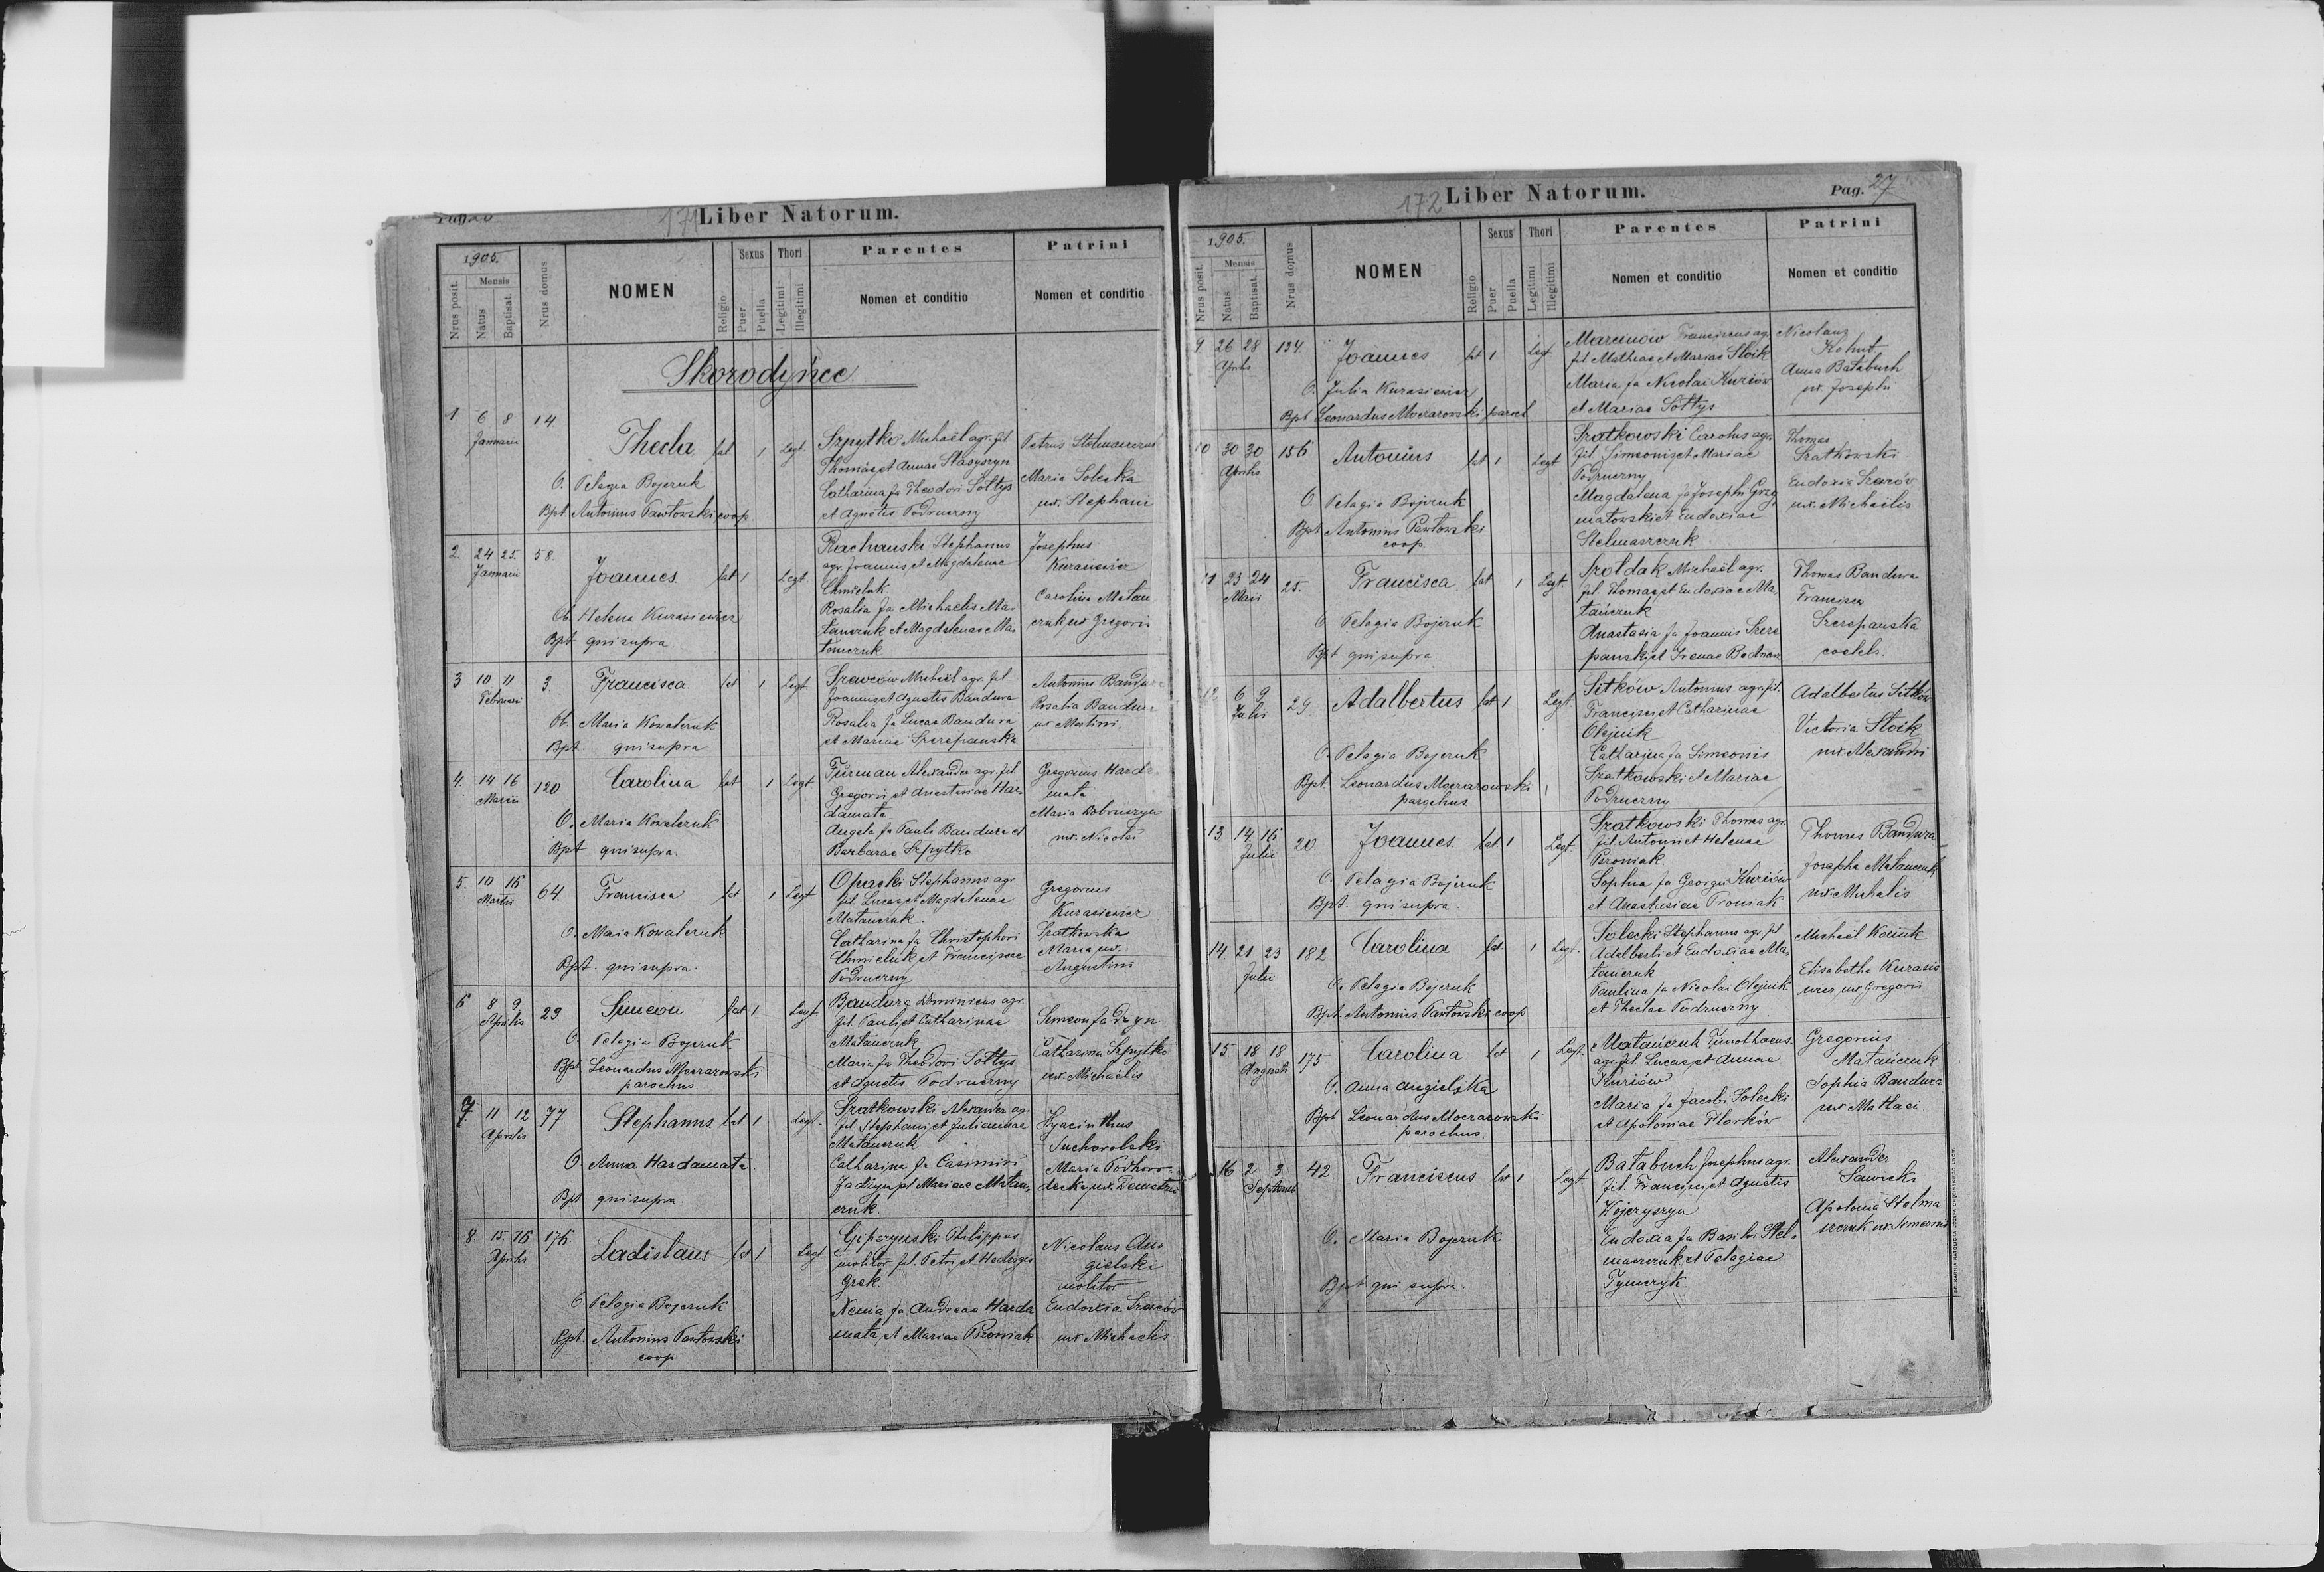 171 Liber Natorum.
1905.
Nrus posit.
Mensis
Natus
Baptisat.
Nrus domus
NOMEN
Religio
Sexus
Puer
Puella
Thori
Legitimi
Illegitimi
Parentes
Nomen et conditio
Patrini
Nomen et conditio
Skorodyńce
1 6 8 14
Januarii
Thecla lat 1 Legt.
O. Pelagia Bojczuk
Bpt. Antonius Pawłowski coop.
Szpytko Michaël agr. fil
Thomae et Annae Stasyszyn
Catharina fa Theodori Sołtys
et Agnetis Podruczny
Maria Solecka
ux. Stephani
2. 24 25. 58.
Januarii
Joannes lat 1 Legt.
Ob. Helena Kurasiewicz
Bpt qui supra.
Rachauski Stephanus
agr. Joannis et Magdalenae
Chmieluk
Rosalia fa Michaelis Ma-
tańczuk et Magdalenae Ma-
Josephus
Kurasiewicz
Carolina Matań
czuk ux Gregorii
3 10 11 3.
Februarii
Francisca lat 1 Legt.
Ob. Maria Kowalczuk
Bpt. qui supra
Michaël agr. fil
Joannis et Agnetis Bandura
Rosalia fa Lucae Bandura
et Mariae Szczepauska
Antonius Bandura
Rosalia Bandura
ux Martini.
4. 14 16 120
Martii
Carolina lat 1 Legt
O. Maria Kowalczuk
Bpt qui supra.
Furman Alexander agr. fil.
Gregorii et Anastasiae Har-
damata
Angela fa Pauli Bandura et
Barbarae Szpytko
Gregorius Harda
mata
Maria
ux. Nicolai
5. 10 16 64.
Martii
Francisca lat 1 Legt
O. Maria Kowalczuk
Bpt. qui supra.
Opacki Stephanus agr
fil. Lucae et Magdalenae
Matańczuk
Catharina fa Christophori
Chmieluk et Franciscae
Podruczny
Gregorius
Kurasiewicz
Szatkowska
Maria ux.
Augustini
6 8 9 29.
Aprilis
Simeon lat 1 Legt.
O. Pelagia Bojczuk
Bpt Leonardus Moczarowski
parochus.
Bandura Dominicus agr.
fil. Pauli et Catharinae
Matańczuk
Maria fa Theodori Sołtys
et Agnetis Podruczny
Simeon Jadzyn
Catharina Szpytko
ux. Michaelis
7 11 12 77
Aprilis
Stephanus lat. 1 Legt.
O Anna Hardamata
Bpt qui supra.
Szatkowski Alexander agr
fil Stephani et Julianae
Matańczuk
Catharina fa Casimiri
Jadzyn et Mariae Matań-
czuk
Hyacinthus
Suchorolski
Maria Podhoro-
decka ux. Demetrii
8 15. 16 176.
Aprilis
Ladislaus lat 1 Legt
O Pelagia Bojczuk
Bpt. Antonius Pawłowski
coop
Philippus
molitor fil. Petri et Hedvigis
Grek
fa Andreae Harda
mata et Mariae Pszoniak
Nicolaus An-
gielski
molitor
Eudoxia
ux Michaelis
172 Liber Natorum. Pag. 27
1905.
Nrus posit.
Mensis
Natus
Baptisat.
Nrus domus
NOMEN
Religio
Sexus
Puer
Puella
Thori
Legitimi
Illegitimi
Parentes
Nomen et conditio
Patrini
Nomen et conditio
9 26 28 134.
Aprilis
Joannes lat 1 Legt.
O. Julia Kurasiewicz
Bpt Leonardus Moczarowski paroch
Marcinów Franciscus agr.
fil Mathiae et Mariae Stoik
Maria fa Nicolai Kuziów
et Mariae Sołtys
Nicolaus
Kohut
Anna Bałabuch
ux. Josephi
10 30 30 156
Aprilis
Antonius lat 1 Legt
O. Pelagia Bojczuk
Bpt Antonius Pawłowski
coop.
Szatkowski Carolus agr.
fil. Simeonis et Mariae
Podruczny
Magdalena fa Josephi Grzy
matowski et Eudoxiae
Stelmaszczuk
Thomas
Szatkowski
Eudoxia
ux. Michaelis
11 23 24 25.
Maii
Francisca lat 1 Legt.
O Pelagia Bojczuk
Bpt qui supra
Michaël agr.
fil. Thomae et Eudoxiae Ma-
tańczuk
Anastasia fa Joannis Szcze
panski et Irenae Bednarz
Thomas Bandura
Francisca
Szczepauska
coelebs.
12 6 9 29
Julii
Adalbertus lat 1 Legt.
O. Pelagia Bojczuk
Bpt. Leonardus Moczarowski
parochus
Sitków Antonius agr. fil.
Francisci et Catharinae
Olejnik
Catharina fa Simeonis
Szatkowski et Mariae
Podruczny
Adalbertus Sitków
Victoria Stoik
ux. Alexandri
13 14 16 20.
Julii
Joannes lat 1 Legt
O. Pelagia Bojczuk
Bpt. qui supra.
Szatkowski Thomas agr.
fil. Antonii et Helenae
Pszoniak
Sophia fa Georgii Kuziów
et Anastasiae Proniak
Thomas Bandura
Josepha Matańczuk
ux. Michalis
14. 21 23 182
Julii
Carolina lat. 1 Legt.
O. Pelagia Bojczuk
Bpt. Antonius Pawłowski coop
Solecki Stephanus agr. fil
Adalberti et Eudoxiae Ma-
tańczuk
Paulina fa Nicolai Olejnik
et Theclae Podruczny
Michaël
Elisabetha Kurasie
wicz ux Gregorii
15. 18 18 175
Augusti
Carolina lat 1 Legt.
O. Anna Angielska
Bpt Leonardus Moczarowski
parochus.
Matańczuk Timothaeus.
agr. fil. Lucae et Annae
Kuziów
Maria fa Jacobi Solecki
et Apoloniae Florków
Gregorius
Matańczuk
Sophia Bandura
ux Mathaei
16 2 3 42
Septemb
Franciscus lat 1 Legt.
O. Maria Bojczuk
Bpt qui supra.
Bałabuch Josephus agr.
fil. Francisci et Agnetis
Wojczyszyn
Eudoxia fa Basilii Stel-
maszczuk et Pelagiae
Tymczyk
Alexander
Sawicki
Apolonia Stelma
szczuk ux. Simeonis